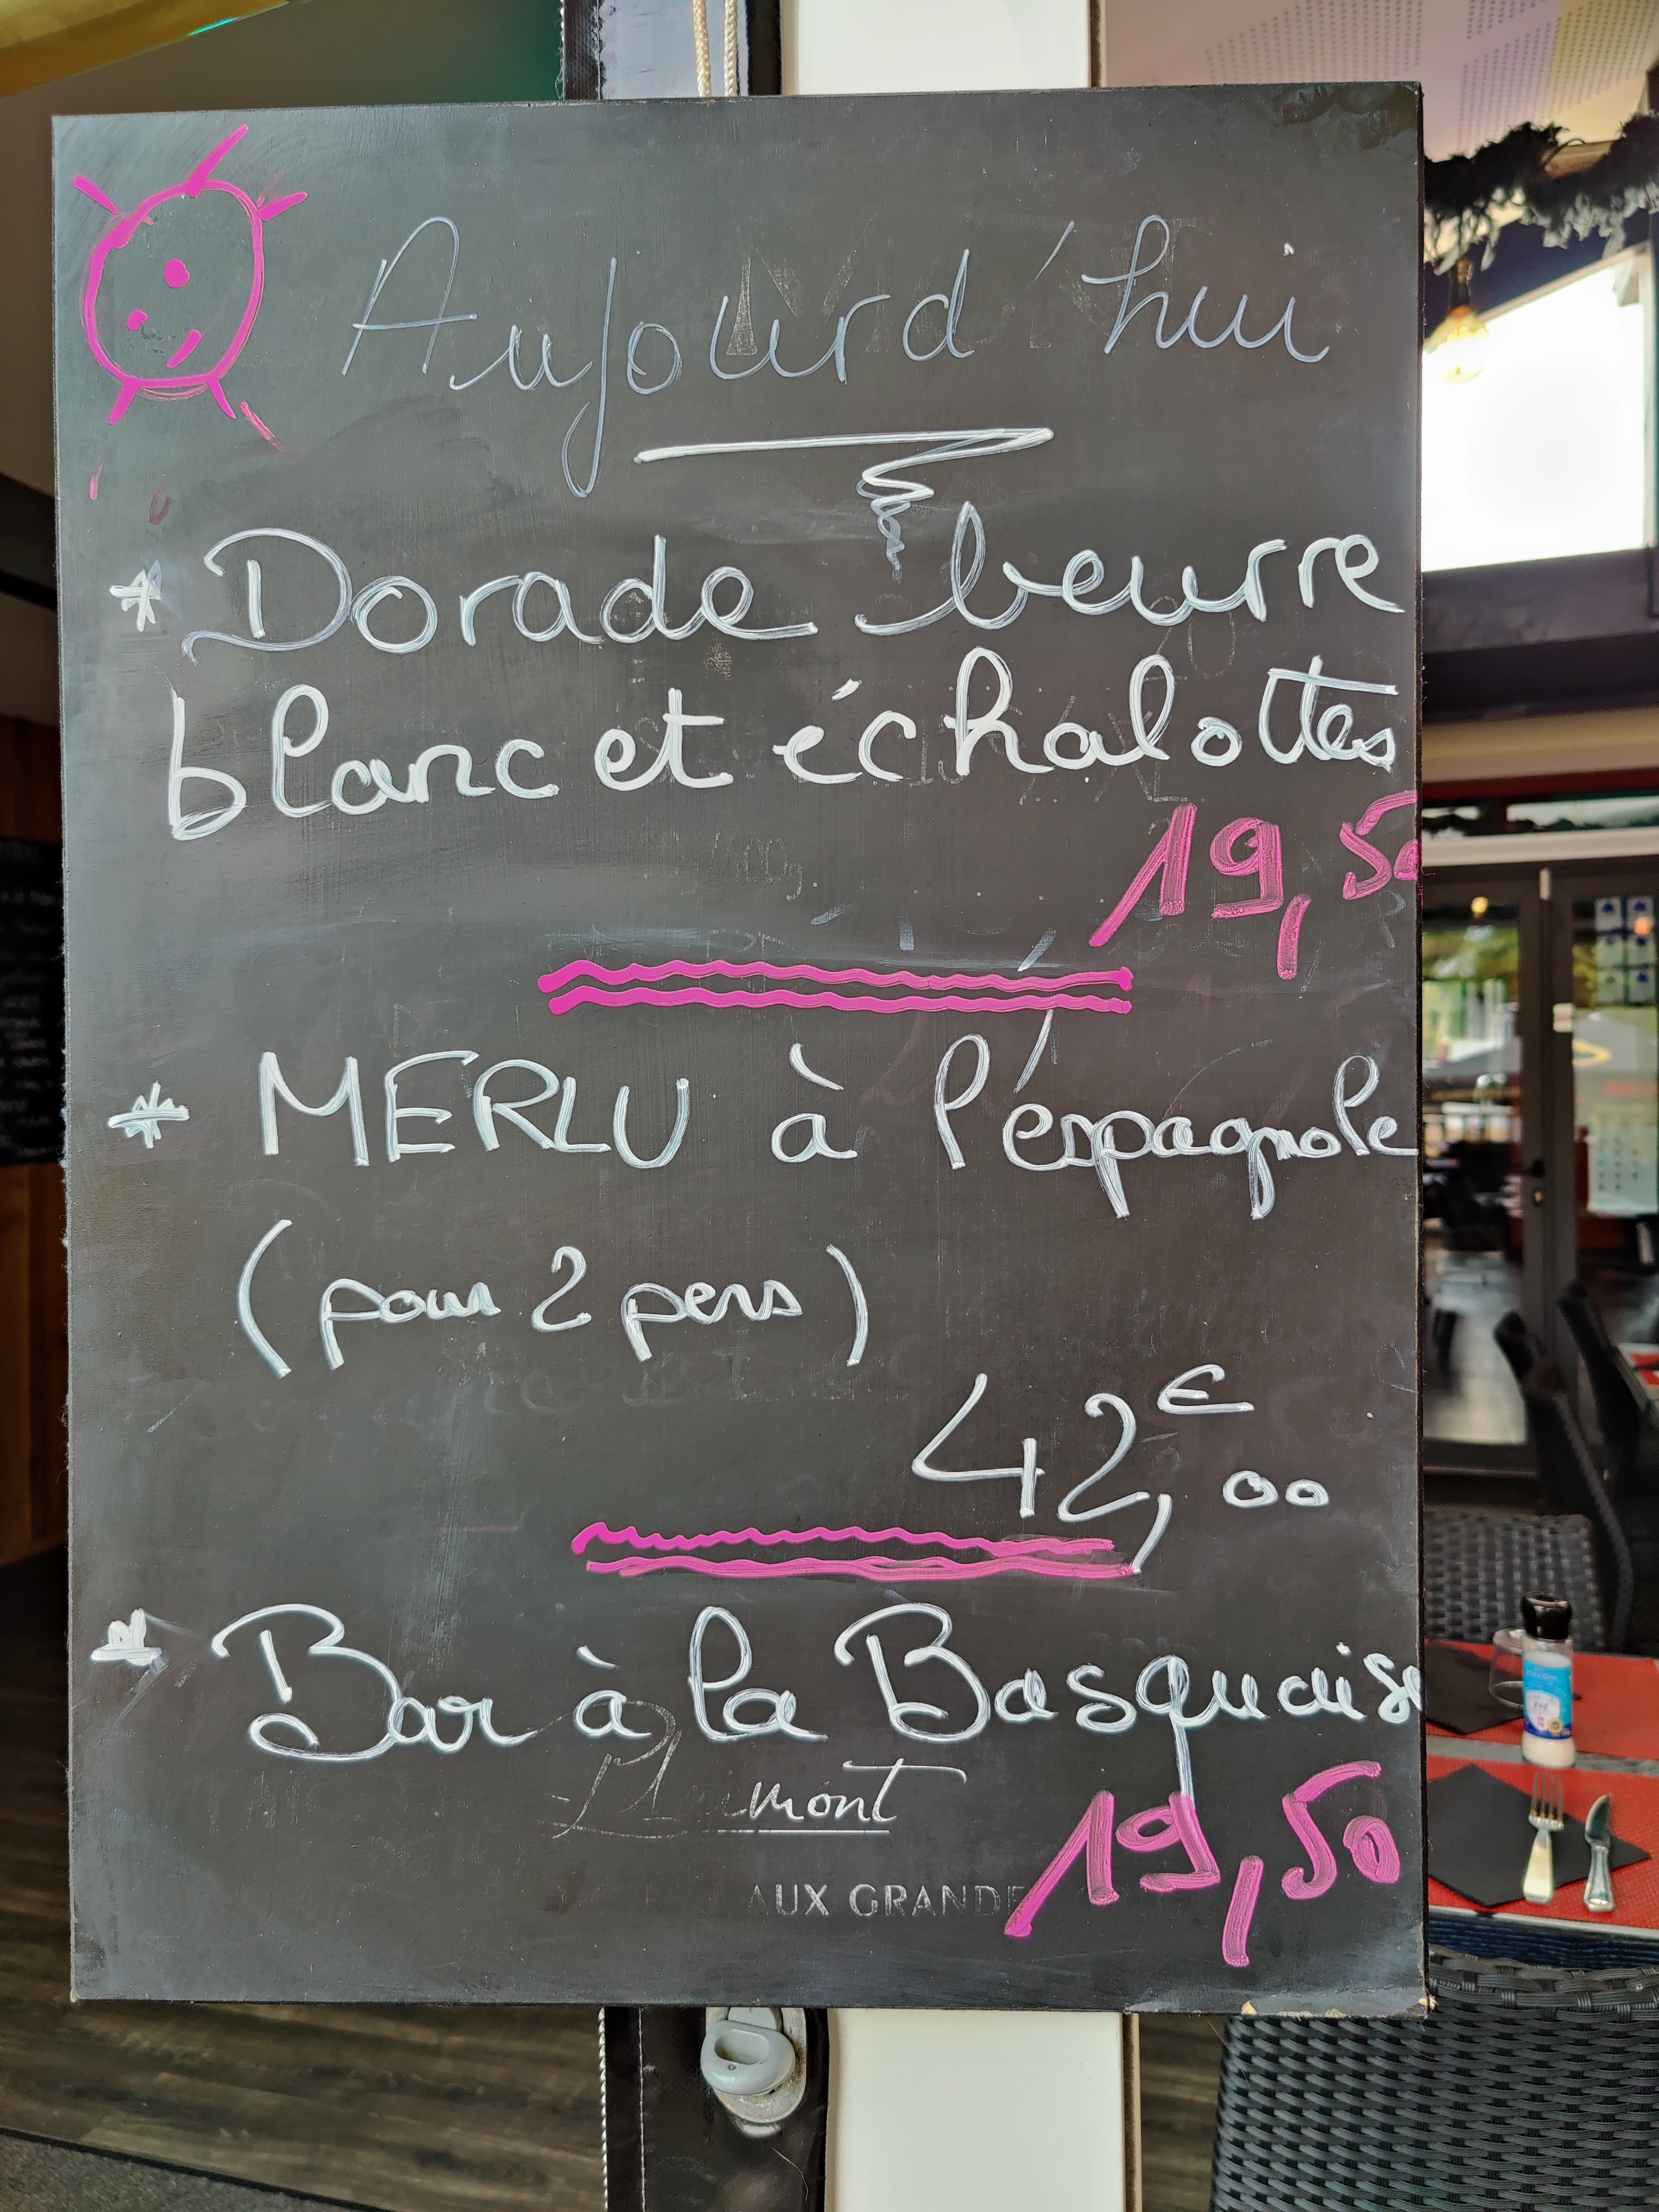 Aujourd'hui
* Dorade beurre
blanc et échalottes
19,50
* MERLU à l'éspagnole
(pour 2 pers)
42,€00
* Bar à la Basquaise
mont
19,50
AUX GRANDE